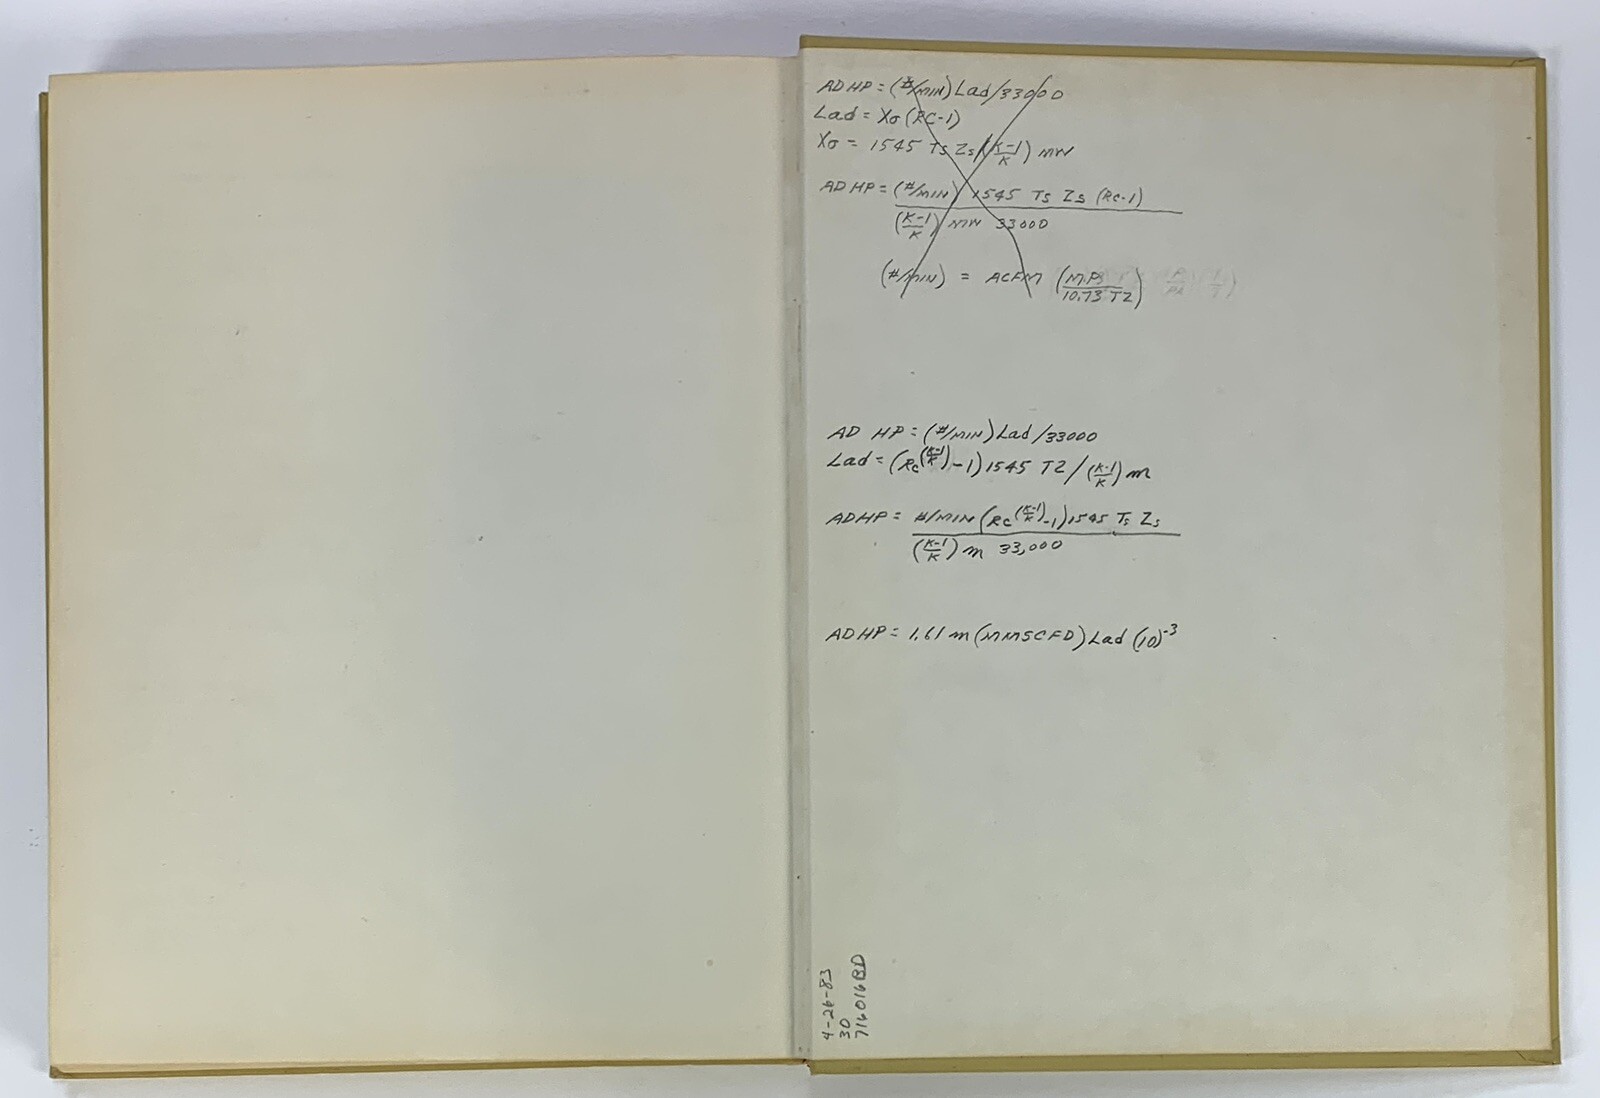 AD HP = (#/MIN) Lad/33000
Lad = Xσ (RC-1)
Xσ = 1545 Ts Zs/(K-1/K) MW
AD HP = (#/MIN) 1545 Ts Zs (RC-1)
(K-1/K) MW 33000
(#/MIN) = ACFM (M Ps/10.73 TZ)
AD HP = (#/MIN) Lad/33000
Lad = (Rc^(K-1/K) -1) 1545 TZ/(K-1/K) m
ADHP = #/MIN (Rc^(K-1/K) -1) 1545 Ts Zs
(K-1/K) m 33,000
ADHP = 1.61 m (MMSCFD) Lad (10)^-3
4-26-83
30
716016BD